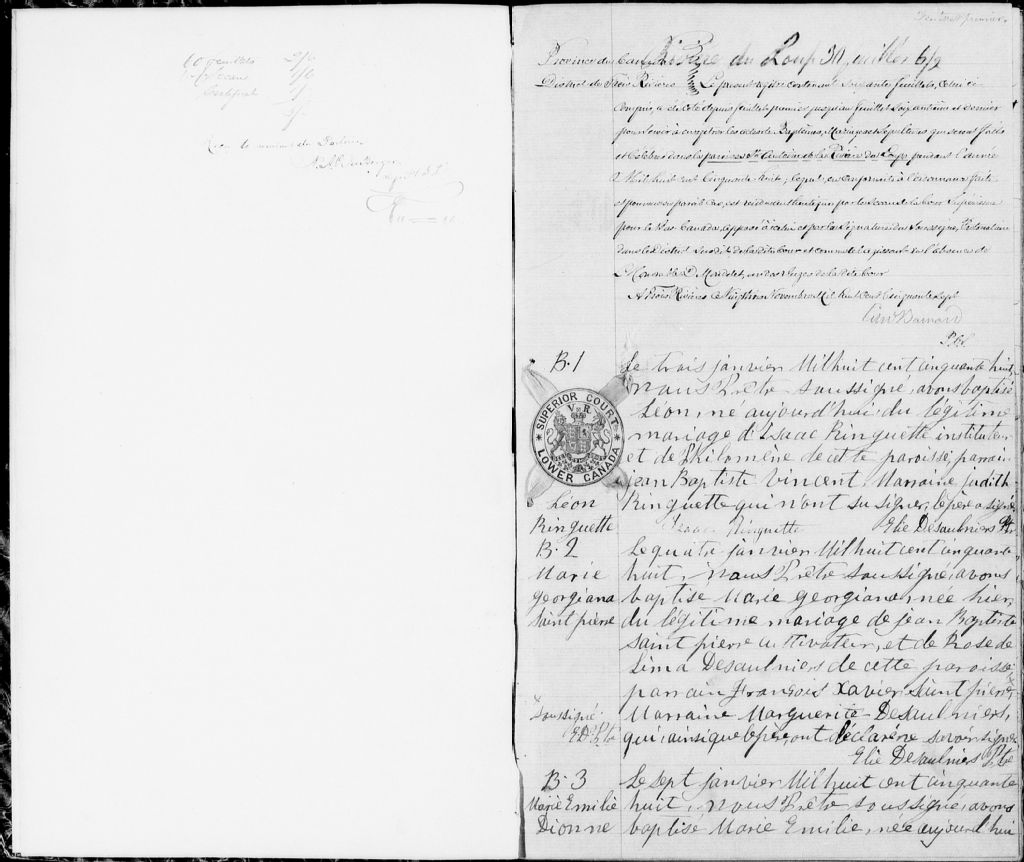 60 feuillets 5/0
1/0
Certificat 1/
feuillet premier
Province du Canada Rivière du Loup
District de Trois Rivières Le présent registre contenant soixante feuillets, celui ci
compris, a été coté depuis feuillet premier jusqu'au feuillet soixantième et dernier
pour servir à enregistrer les actes de Baptêmes, Mariages et sépultures qui seront faits
et célébrés dans la paroisse St. Antoine de la Rivière du Loup, pendant l'année
Mil huit cent cinquante huit; lequel, en conformité à l'ordonnance faite
et pourvue en pareil cas, est rendu authentique par le sceau de la Cour Supérieure
pour le Bas Canada, apposé à icelui et par la signature du soussigné, Protonotaire
dans le District susdit de la dite Cour et comme tel agissant en l'absence de
l'Honorable D. Mondelet, un des Juges de la dite Cour
A Trois Rivières le Novembre Mil huit cent cinquante sept
Barnard
P.C.S.
B. 1
SUPERIOR COURT
V R
LOWER CANADA
Léon
Ringuette
Le trois janvier Mil huit cent cinquante huit
nous Prêtre soussigné, avons baptisé
Léon, né aujourd'hui du légitime
mariage d'Isaac Ringuette instituteur
et de Philomène de cette paroisse, parrain
jean Baptiste Vincent Marraine judith
Ringuette qui n'ont su signer, le père a signé
Isaac Ringuette Elie Desaulniers Ptr
B. 2
Marie
georgiana
Saint pierre
Le quatre janvier Mil huit cent cinquante
huit, nous Prêtre soussigné, avons
baptisé Marie georgiana, née hier,
du légitime mariage de jean Baptiste
Saint pierre cultivateur, et de Rose de
Lima Desaulniers de cette paroisse
parrain François Xavier Saint pierre,
Marraine Marguerite Desaulniers,
qui, ainsi que le père, ont déclaré ne savoir signer
Elie Desaulniers Ptre
Soussigné
E.D. Ptr
B. 3
Marie Emilie
Dionne
Le sept janvier Mil huit cent cinquante
huit, nous Prêtre soussigné, avons
baptisé Marie Emilie, née aujourd'hui